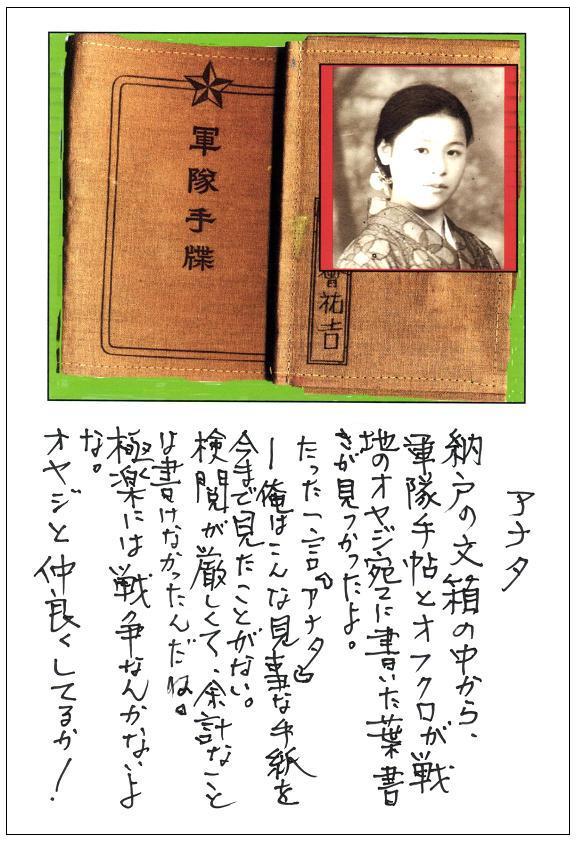 軍隊手牒
祐吉
アナタ
納戸の文箱の中から、
軍隊手帖とオフクロが戦
地のオヤジ宛てに書いた葉書
きが見つかったよ。
たった一言『アナタ』
ー俺はこんな見事な手紙を
今まで見たことがない。
検閲が厳しくて、余計なこと
は書けなかったんだね。
極楽には戦争なんかないよ
な。
オヤジと仲良くしてるか!